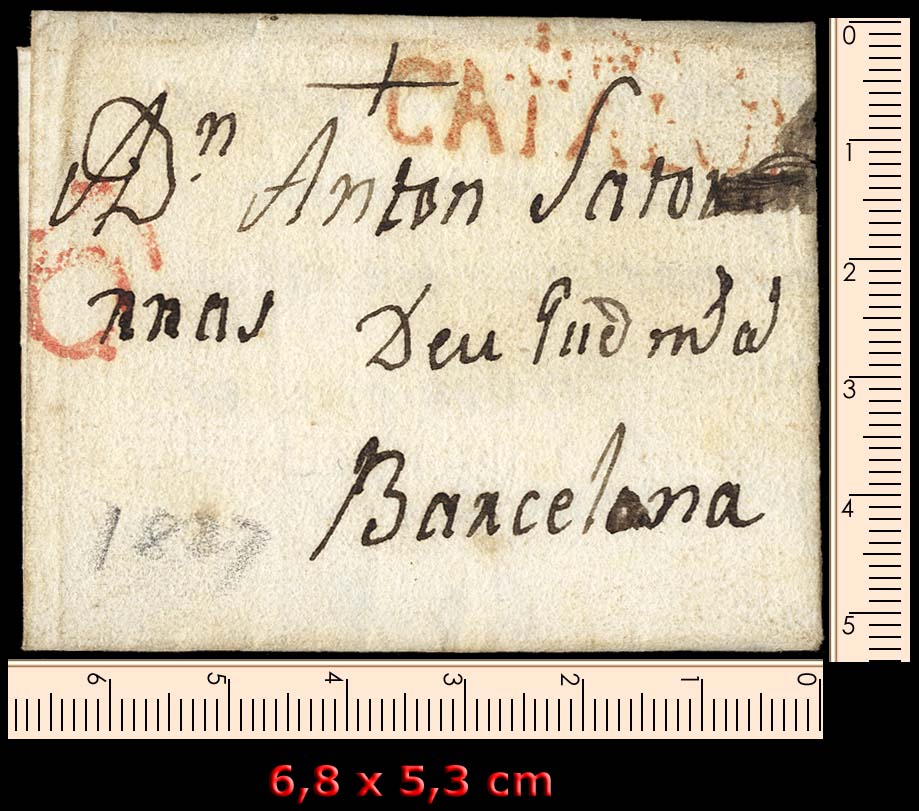 CATALU
Dn Anton Saton
nnas Deu Gue md as
Barcelona
1827
0
1
2
3
4
5
6 5 4 3 2 1 0
6,8 x 5,3 cm